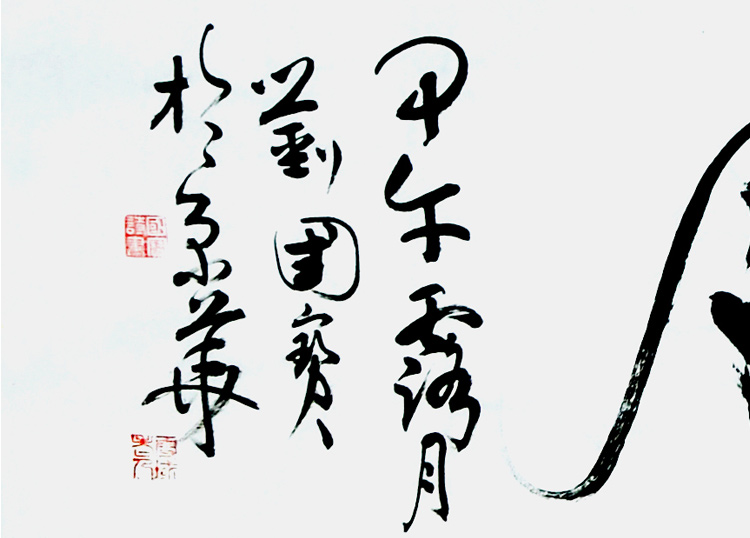 甲午露月
劉国寶
於京華